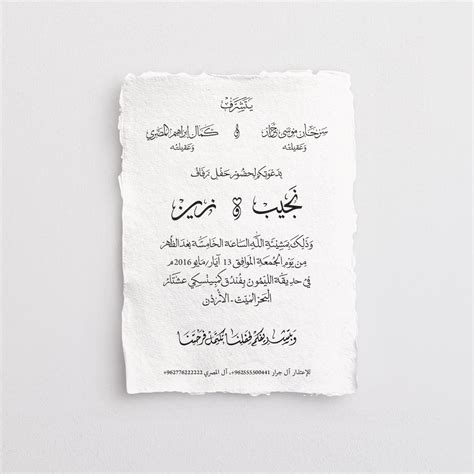 يتشرف
سرحان موسى جرار و كمال إبراهيم المصري
وعقيلته وعقيلته
بدعوتكم لحضور حفل زفاف
نجيب و زين
وذلك بمشيئة الله الساعة الخامسة بعد الظهر
من يوم الجمعة الموافق 13 أيار/مايو 2016م
في حديقة الليمون بفندق كمبينسكي عشتار
البحر الميت - الأردن
وبتشريفكم لحفلنا تكتمل فرحتنا
للإعتذار آل جرار 962555500441+، آل المصري 962776222222+